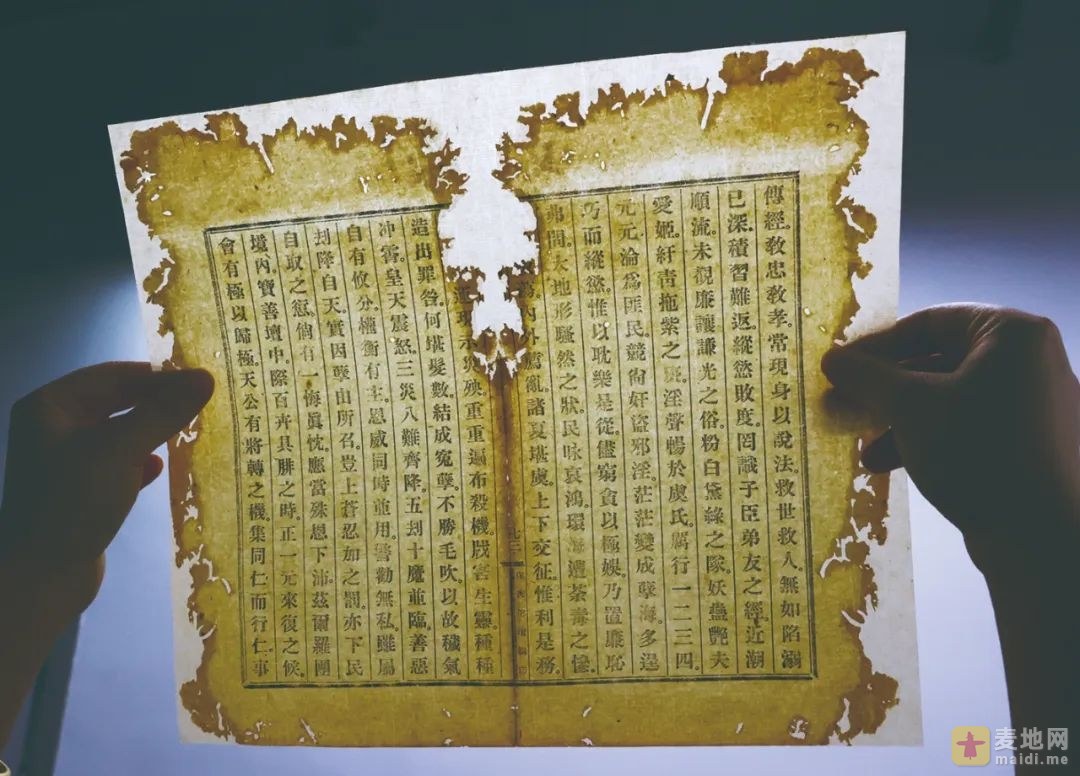 傳經敎忠敎孝。常現身以說法。救世救人。無如陷溺
已深。積習難返。縱慾敗度。罔識子臣弟友之經。近潮
順流。未覩廉讓謙光之俗。粉白黛綠之隊。妖蠱艷夫
愛姬。紆靑拖紫之班。淫聲暢於虞氏。厲行一二三四
元元淪爲匪民。競尙奸盜邪淫。茫茫變成孽海。多逞
巧而縱慾。惟以耽樂是從。儘窮貪以極娛。乃置廉恥
弗問。大地形騷然之狀。民咏哀鴻。環海遭荼毒之慘。
內外鴌亂。諸夏堪虞。上下交征。惟利是務。
示災殃。重重遍布殺機。戕害生靈。種種
造出罪咎。何堪髮數。結成寃孽。不勝毛吹。以故穢氣
冲霄。皇天震怒。三災八難齊降。五刦十魔並臨。善惡
自有攸分。權衡有主。恩威同時並用。警勸無私。雖屬
刦降自天。實因孽由所召。豈上蒼忍加之罰。亦下民
自取之愆。倘有一悔眞忱。應當殊恩下沛。茲爾羅團
境內。寶善壇中。際百卉具腓之時。正一元來復之候。
會有極以歸極。天公有將轉之機。集同仁而行仁。事
麦地网
maidi.me